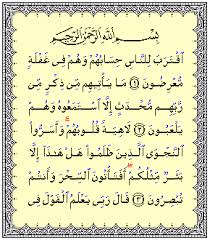 بِسْمِ اللَّهِ الرَّحْمَٰنِ الرَّحِيمِ
ٱقْتَرَبَ لِلنَّاسِ حِسَابُهُمْ وَهُمْ فِى غَفْلَةٍ
مُّعْرِضُونَ ١ مَا يَأْتِيهِم مِّن ذِكْرٍ مِّن
رَّبِّهِم مُّحْدَثٍ إِلَّا ٱسْتَمَعُوهُ وَهُمْ
يَلْعَبُونَ ٢ لَاهِيَةً قُلُوبُهُمْ وَأَسَرُّوا۟
ٱلنَّجْوَى ٱلَّذِينَ ظَلَمُوا۟ هَلْ هَٰذَآ إِلَّا
بَشَرٌ مِّثْلُكُمْ أَفَتَأْتُونَ ٱلسِّحْرَ وَأَنتُمْ
تُبْصِرُونَ ٣ قَالَ رَبِّى يَعْلَمُ ٱلْقَوْلَ فِى